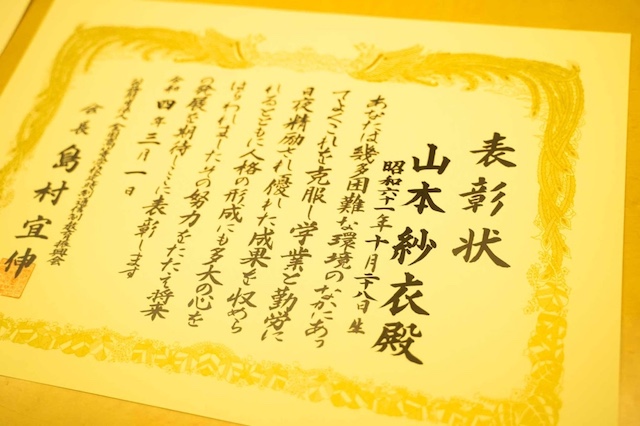 表彰状
山本紗衣殿
昭和六十一年十月二十八日生
あなたは幾多困難な環境のなかにあっ
てよくこれを克服し学業と勤労に
日夜精励され優れた成果を収めら
れるとともに人格の形成にも多大の心を
はらわれましたその努力をたたえ将来
の発展を期待しここに表彰します
令和四年三月一日
会長 島村宜伸